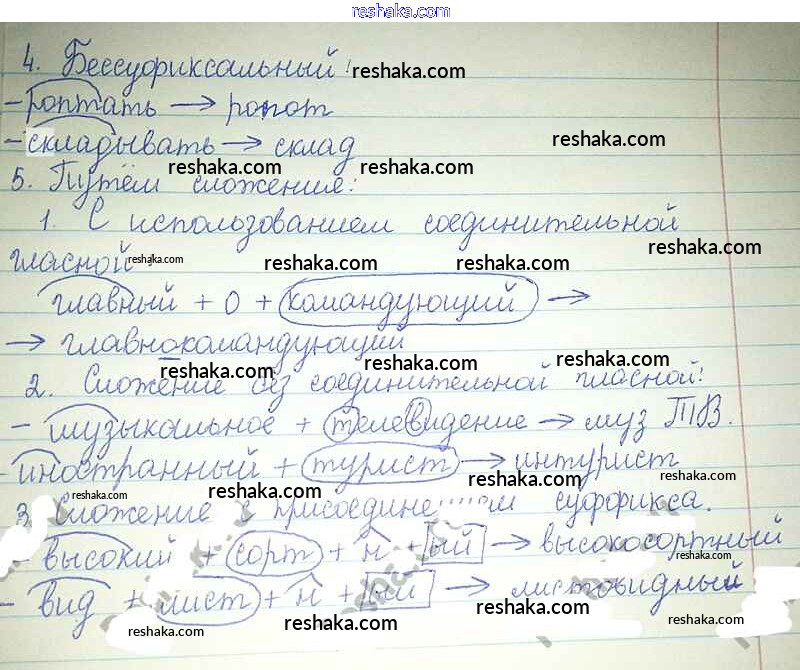 reshaka.com
4. Бессуффиксальный: reshaka.com
- роптать → ропот
- складывать → склад reshaka.com
reshaka.com reshaka.com
5. Путём сложения:
1. С использованием соединительной reshaka.com
гласной: reshaka.com reshaka.com reshaka.com
главный + о + командующий →
→ главнокомандующий
reshaka.com reshaka.com reshaka.com
2. Сложение без соединительной гласной:
- музыкальное + телевидение → муз ТВ.
reshaka.com reshaka.com reshaka.com
- иностранный + турист → интурист
reshaka.com reshaka.com reshaka.com reshaka.com
3. Сложение с суффикса.
reshaka.com reshaka.com
- высокий + сорт + н + ый → высокосортный
reshaka.com reshaka.com reshaka.com
- вид + лист + н + ый → листовидный
reshaka.com reshaka.com reshaka.com reshaka.com